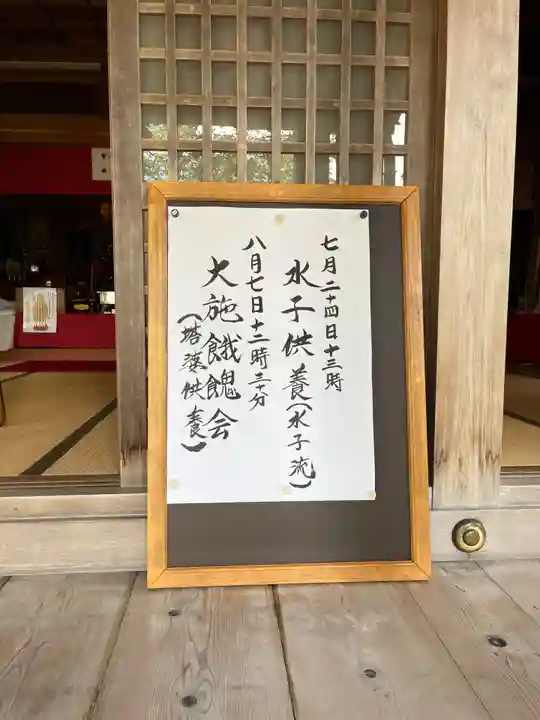 七月二十四日十三時
水子供養（水子流）
八月七日十二時三十分
大施餓鬼会
（塔婆供養）